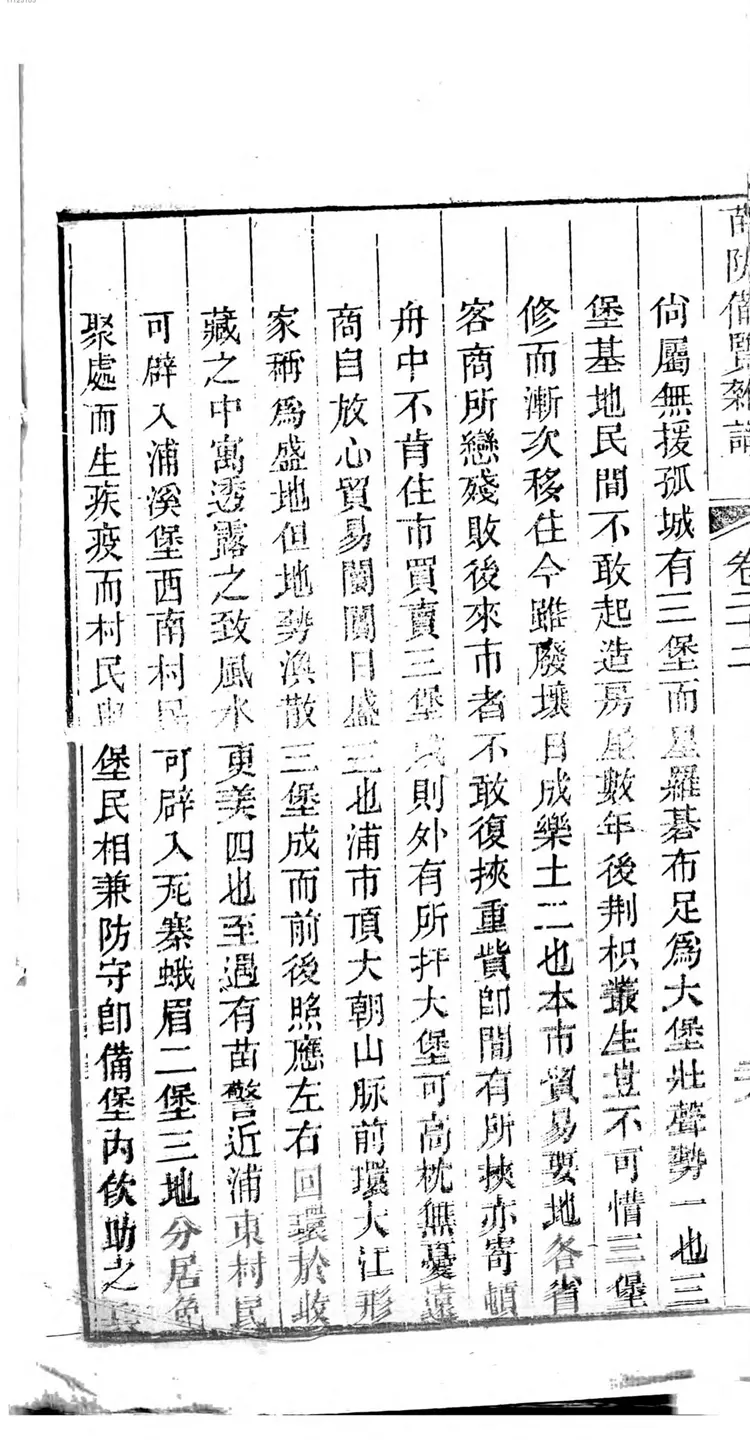 苗防備覽雜識
卷二十二
尙屬無援孤城有三堡而星羅碁布足為大堡壯聲勢一也三
堡基地民間不敢起造房屋數年後荆枳叢生豈不可惜三堡
修而漸次移住今雖廢壤日成樂土二也本市貿易要地各省
客商所戀殘敗後來市者不敢復挾重貲卽間有所挾亦寄頓
舟中不肯住市買賣三堡成則外有所扞大堡可高枕無憂遠
商自放心貿易闤闠日盛三也浦市頂大朝山脈前環大江形
家稱為盛地但地勢渙散三堡成而前後照應左右回環於收
藏之中寓透露之致風水更美四也至遇有苗警近浦東村民
可辟入浦溪堡西南村民可辟入茺寨蛾眉二堡三地分居免
聚處而生疾疫而村民與堡民相兼防守卽備堡內佽助之